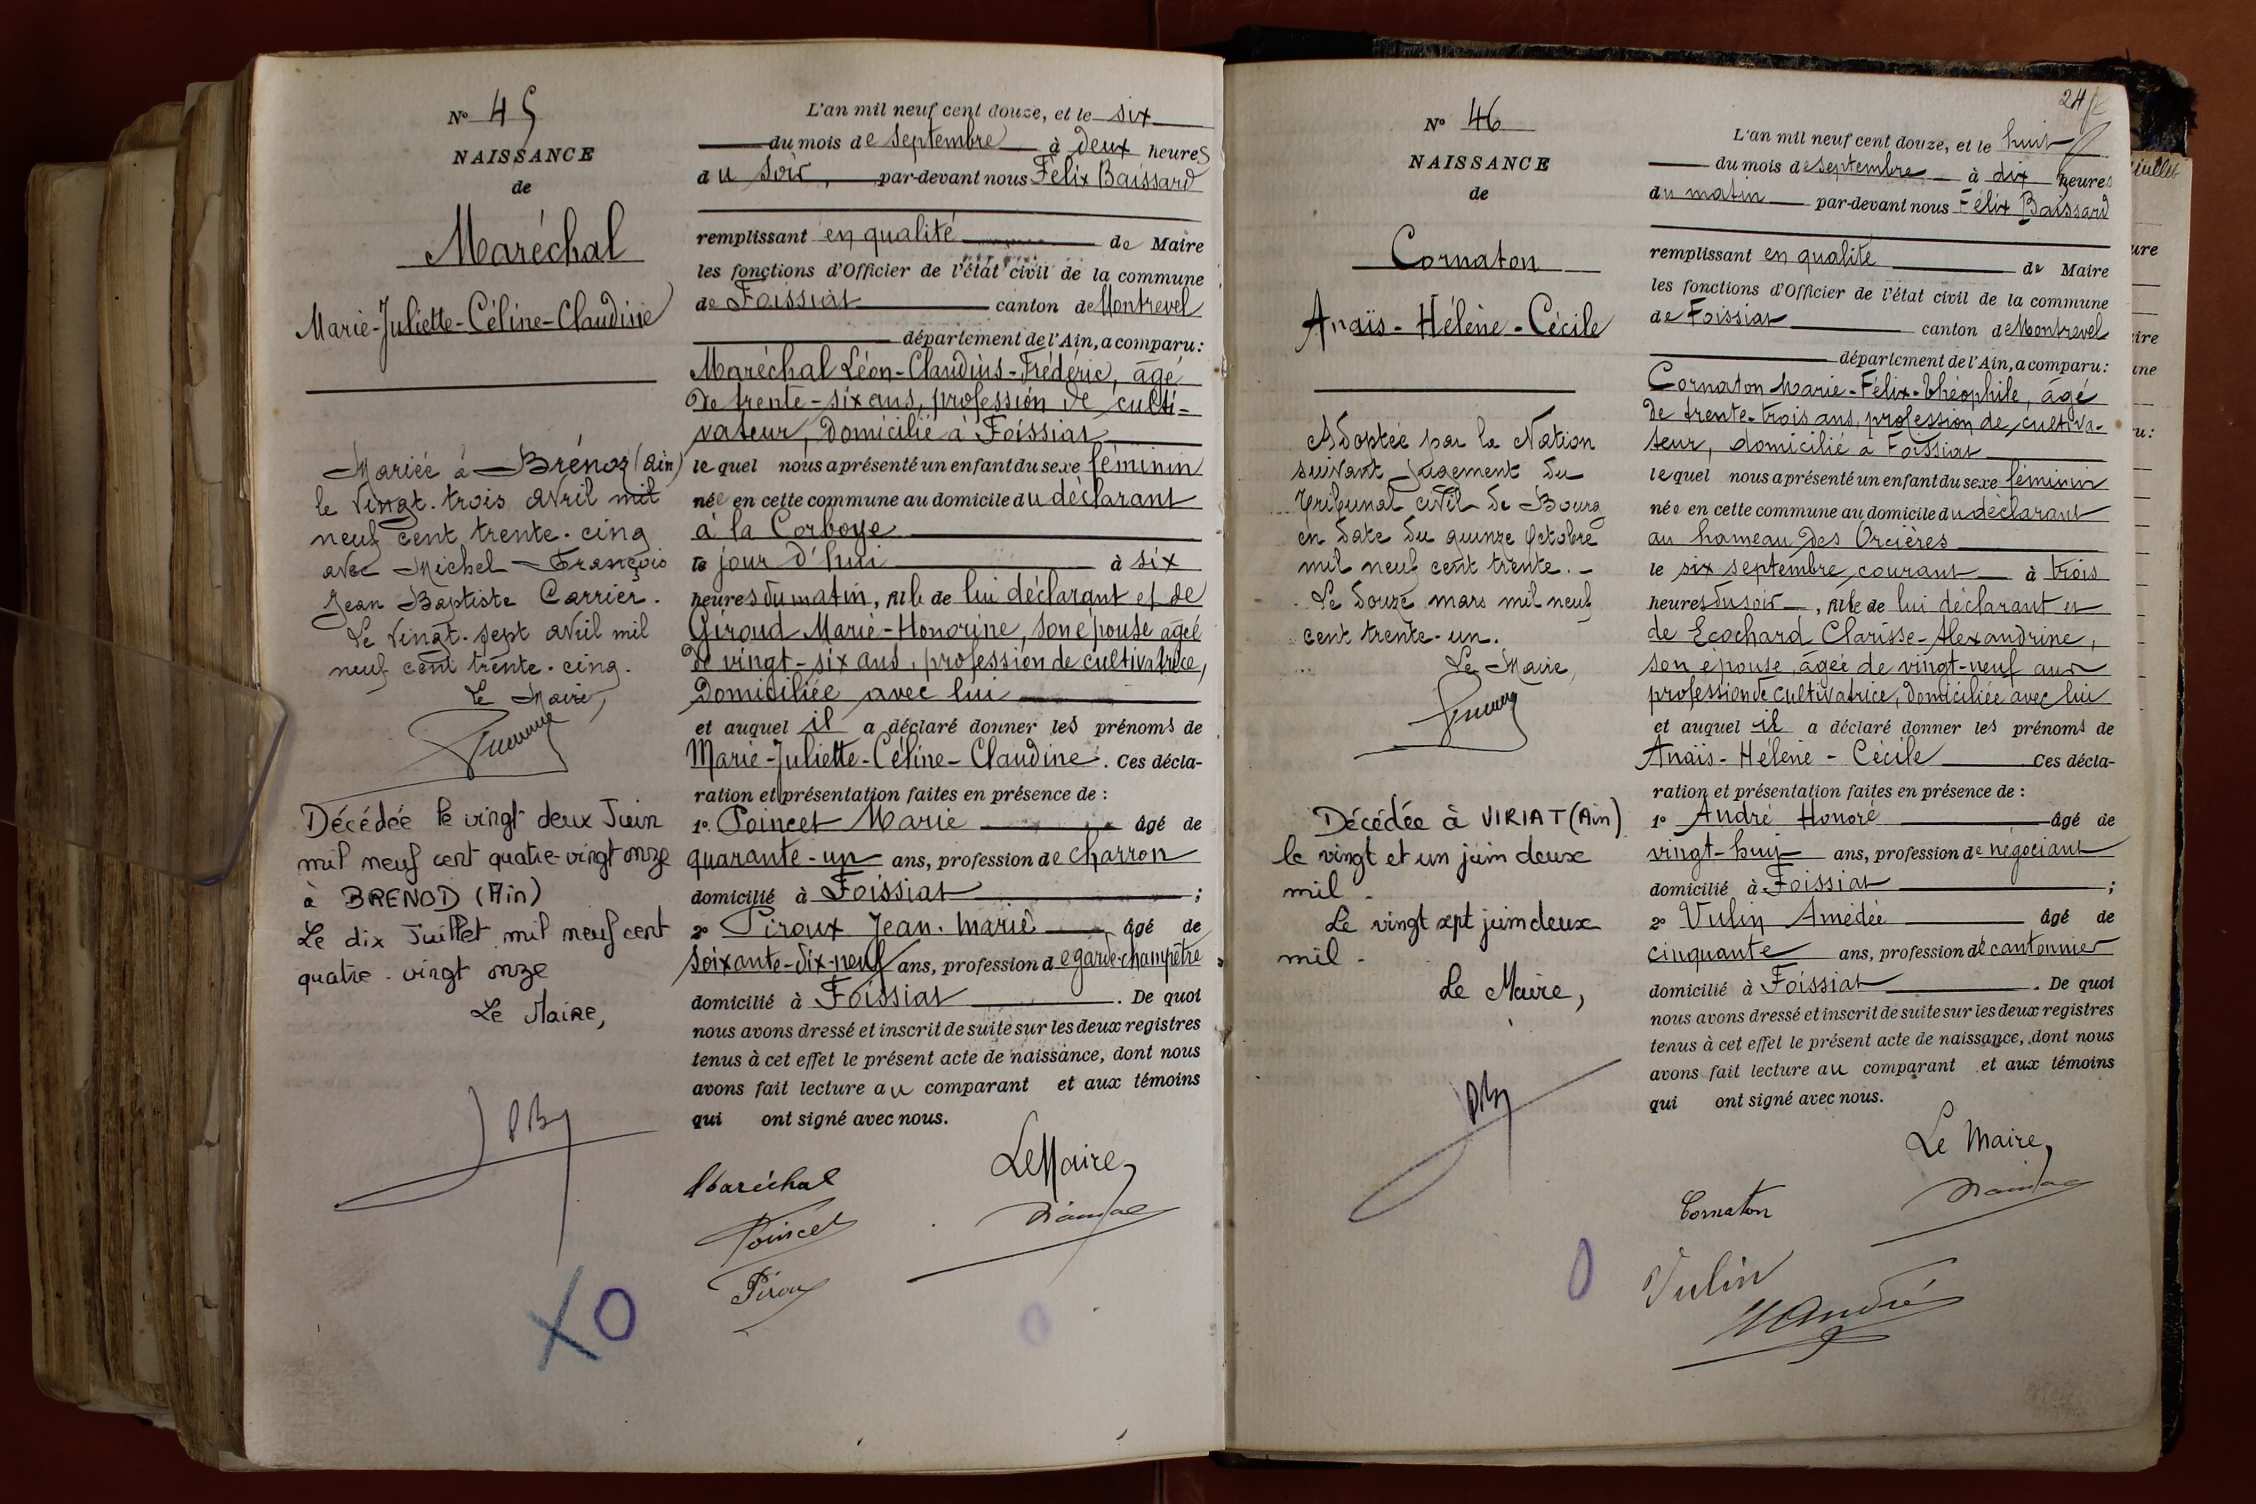 N° 45
NAISSANCE
de
Maréchal
Marie-Juliette-Céline-Claudine
Mariée à Brénoz (Ain)
le vingt-trois avril mil
neuf cent trente-cinq
avec Michel-François
Jean Baptiste Carrier.
Le vingt-sept avril mil
neuf cent trente-cinq.
Le Maire,
Décédée le vingt deux Juin
mil neuf cent quatre-vingt onze
à BRENOD (Ain)
Le dix Juillet mil neuf cent
quatre-vingt onze
Le Maire,
L'an mil neuf cent douze, et le six
du mois de septembre à deux heures
du soir, par-devant nous Félix Baissard
remplissant en qualité de Maire
les fonctions d'Officier de l'état civil de la commune
de Foissiat canton de Montrevel
département de l'Ain, a comparu:
Maréchal Léon-Claudius-Frédéric, âgé
de trente-six ans, profession de culti-
vateur, domicilié à Foissiat
lequel nous a présenté un enfant du sexe féminin
née en cette commune au domicile du déclarant
à la Corboye
le jour d'hui à six
heures du matin, fille de lui déclarant et de
Giroud Marie-Honorine, son épouse agée
de vingt-six ans, profession de cultivatrice,
domiciliée avec lui
et auquel il a déclaré donner les prénoms de
Marie-Juliette-Céline-Claudine. Ces décla-
ration et présentation faites en présence de :
1° Poincet Marie âgé de
quarante-un ans, profession de charron
domicilié à Foissiat ;
2° Piroux Jean-Marie âgé de
soixante-dix-neuf ans, profession de garde-champêtre
domicilié à Foissiat . De quoi
nous avons dressé et inscrit de suite sur les deux registres
tenus à cet effet le présent acte de naissance, dont nous
avons fait lecture au comparant et aux témoins
qui ont signé avec nous.
Le Maire,
Maréchal
Poincet
Piroux
XO
24
N° 46
NAISSANCE
de
Cornaton
Anaïs-Hélène-Cécile
Adoptée par la Nation
suivant jugement du
Tribunal civil de Bourg
en date du quinze Octobre
mil neuf cent trente.-
Le douze mars mil neuf
cent trente-un.
Le Maire,
Décédée à VIRIAT (Ain)
le vingt et un juin deux
mil.
Le vingt sept juin deux
mil.
Le Maire,
L'an mil neuf cent douze, et le huit
du mois de septembre à dix heures
du matin par-devant nous Félix Baissard
remplissant en qualité de Maire
les fonctions d'Officier de l'état civil de la commune
de Foissiat canton de Montrevel
département de l'Ain, a comparu:
Cornaton Marie-Félix-Théophile, âgé
de trente-trois ans, profession de cultiva-
teur, domicilié à Foissiat
lequel nous a présenté un enfant du sexe féminin
née en cette commune au domicile du déclarant
au hameau des Orcières
le six septembre courant à trois
heures du soir, fille de lui déclarant et
de Ecochard Clarisse-Alexandrine,
son épouse, âgée de vingt-neuf ans
profession de cultivatrice, domiciliée avec lui
et auquel il a déclaré donner les prénoms de
Anaïs-Hélène-Cécile Ces décla-
ration et présentation faites en présence de :
1° André Honoré âgé de
vingt-huit ans, profession de négociant
domicilié à Foissiat ;
2° Vulin Amédée âgé de
cinquante ans, profession de cantonnier
domicilié à Foissiat . De quoi
nous avons dressé et inscrit de suite sur les deux registres
tenus à cet effet le présent acte de naissance, dont nous
avons fait lecture au comparant et aux témoins
qui ont signé avec nous.
Le Maire,
Cornaton
Vulin
H André
0
juillet